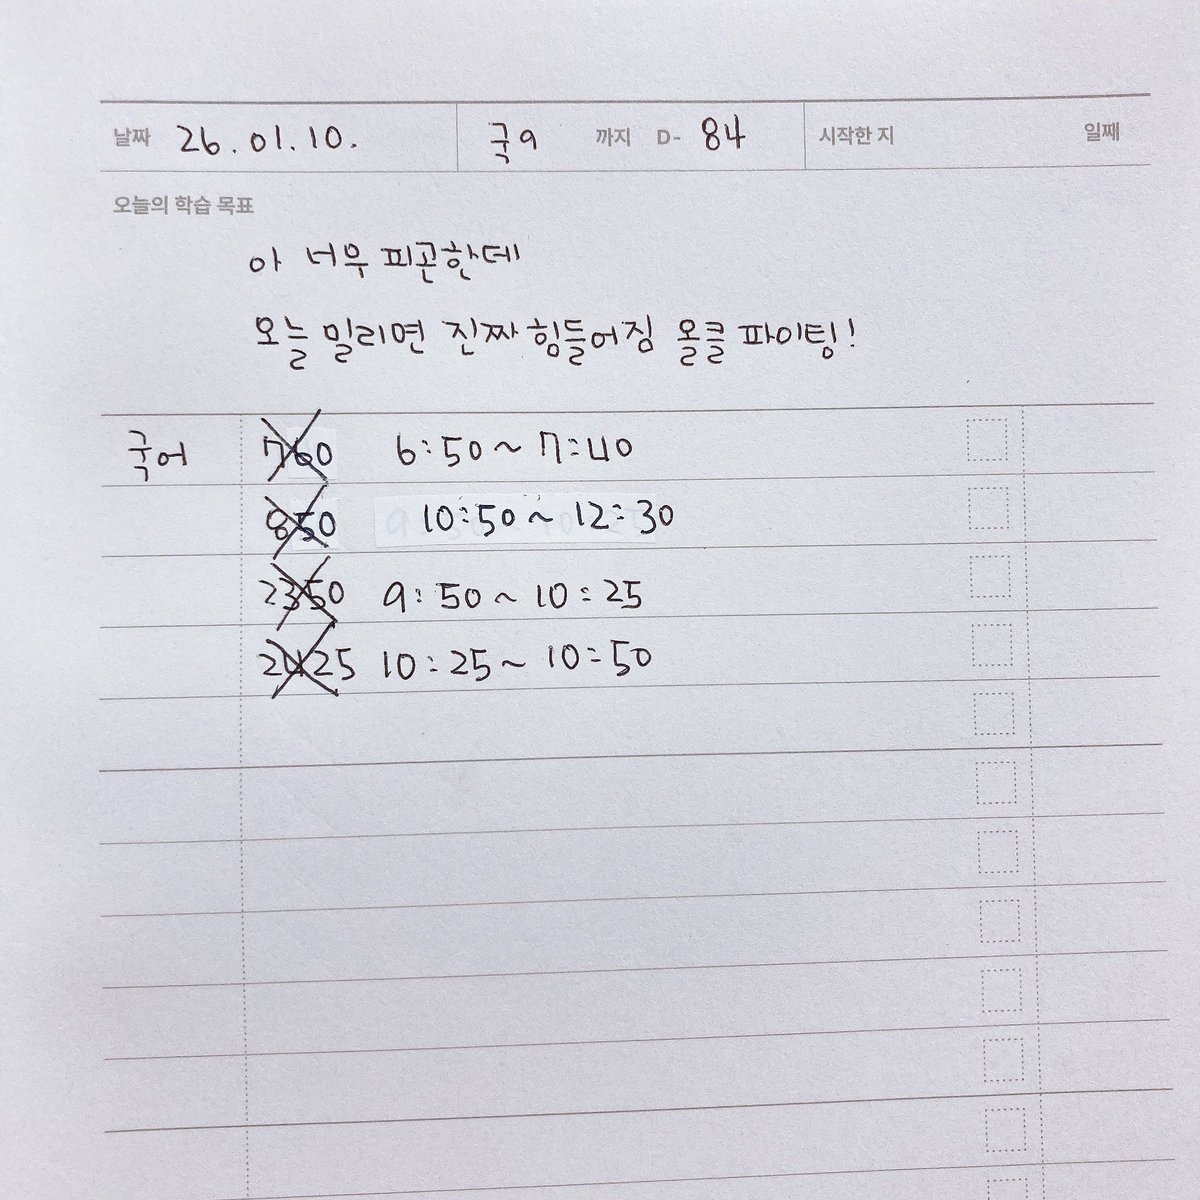 날짜 26.01.10. 국9 까지 D- 84 시작한 지 일째
오늘의 학습 목표
아 너무 피곤한데
오늘 밀리면 진짜 힘들어짐 올클 파이팅!
국어 7 60 6:50~7:40
8 50 10:50~12:30
23 50 9:50~10:25
24 25 10:25~10:50